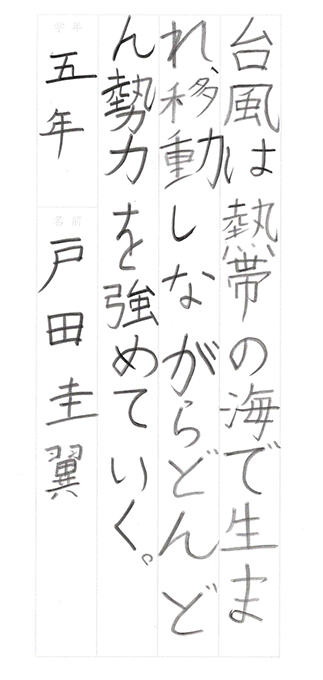 台風は熱帯の海で生ま
れ、移動しながらどんど
ん勢力を強めていく。
学年
五年
名前
戸田圭翼